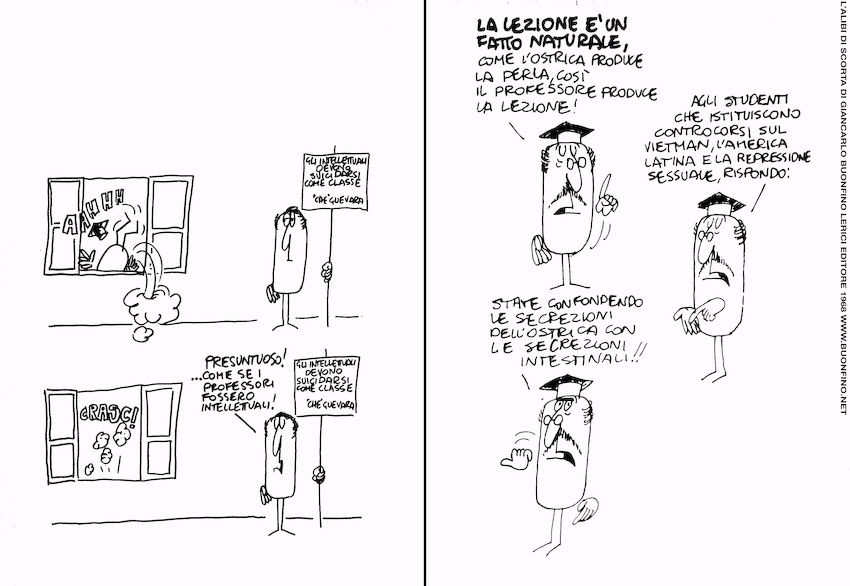 -AAHHHH
GLI INTELLETTUALI
DEVONO
SUICIDARSI
COME CLASSE
"CHE" GUEVARA
PRESUNTUOSO!
...COME SE I
PROFESSORI
FOSSERO
INTELLETTUALI!
GLI INTELLETTUALI
DEVONO
SUICIDARSI
COME CLASSE
"CHE" GUEVARA
CRASC!
LA LEZIONE E' UN
FATTO NATURALE,
COME L'OSTRICA PRODUCE
LA PERLA, COSÌ
IL PROFESSORE PRODUCE
LA LEZIONE!
AGLI STUDENTI
CHE ISTITUISCONO
CONTROCORSI SUL
VIETMAN, L'AMERICA
LATINA E LA REPRESSIONE
SESSUALE, RISPONDO:
STATE CONFONDENDO
LE SECREZIONI
DELL'OSTRICA CON
LE SECREZIONI
INTESTINALI!!
L'ALIBI DI SCORTA DI GIANCARLO BUONFINO LERICI EDITORE 1968 WWW.BUONFINO.NET